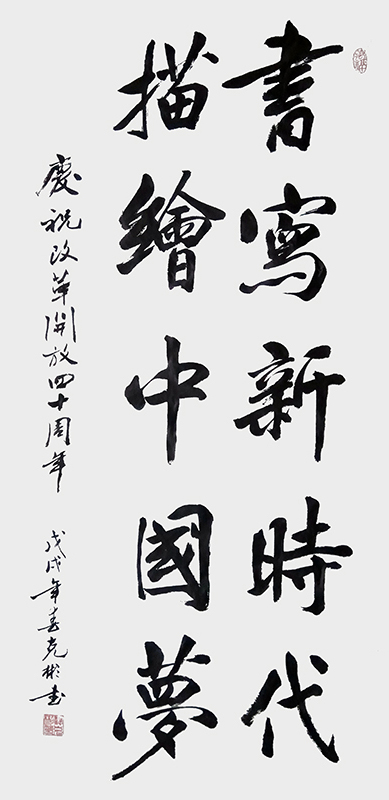 書寫新時代
描繪中國夢
慶祝改革開放四十周年
戊戌年春克彬書